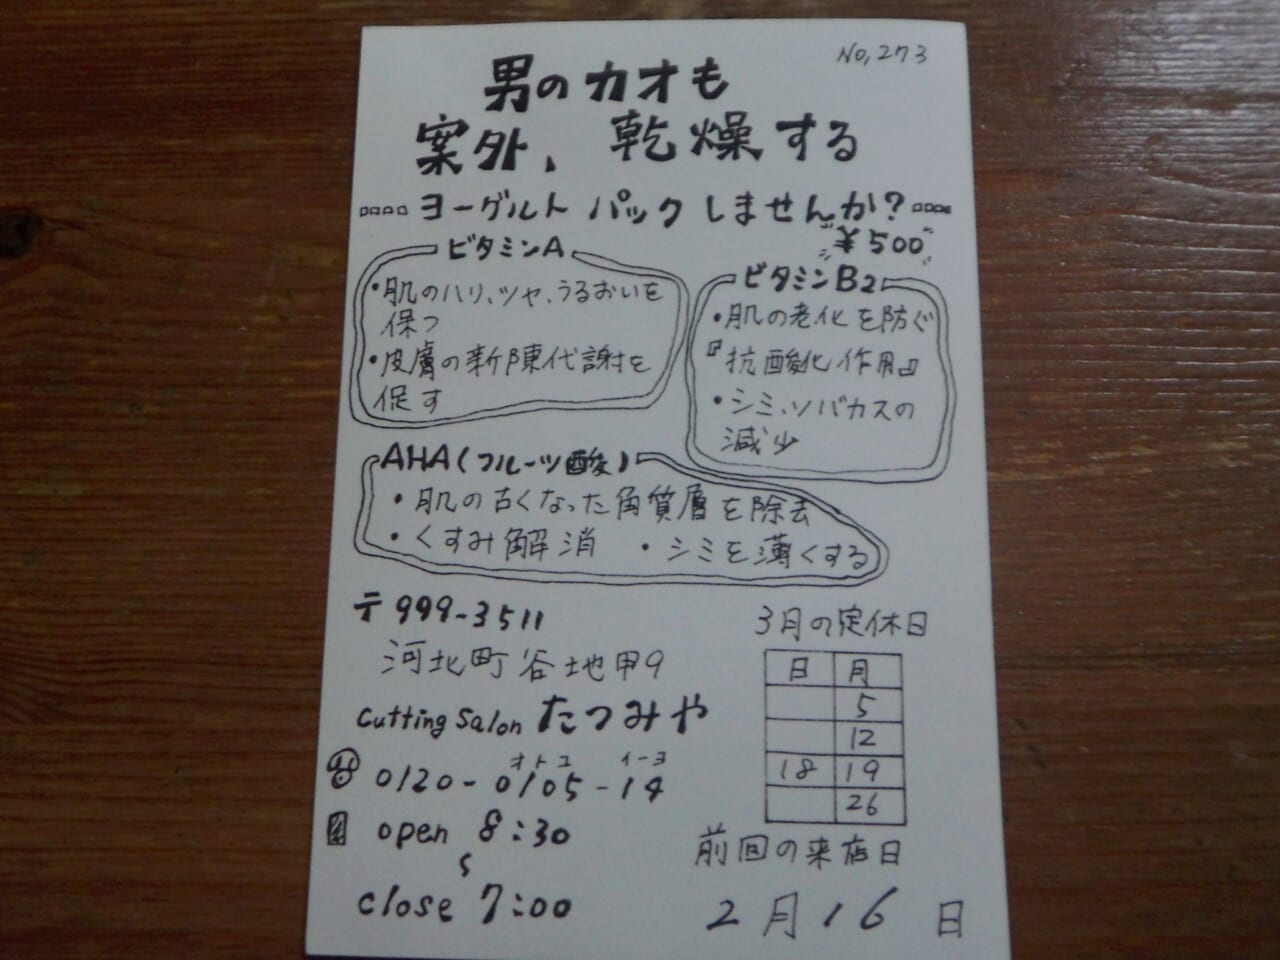 No,273
男のカオも
案外、乾燥する
ヨーグルトパックしませんか?
¥500
ビタミンA
・肌のハリ、ツヤ、うるおいを
保つ
・皮膚の新陳代謝を
促す
ビタミンB2
・肌の老化を防ぐ
『抗酸化作用』
・シミ、ソバカスの
減少
AHA(フルーツ酸)
・肌の古くなった角質層を除去
・くすみ解消 ・シミを薄くする
〒999-3511
河北町谷地甲9
Cutting Salon たつみや
オトコ イーヨ
0120-0105-14
open 8:30
〜
close 7:00
3月の定休日
日 月
5
12
18 19
26
前回の来店日
2月16日